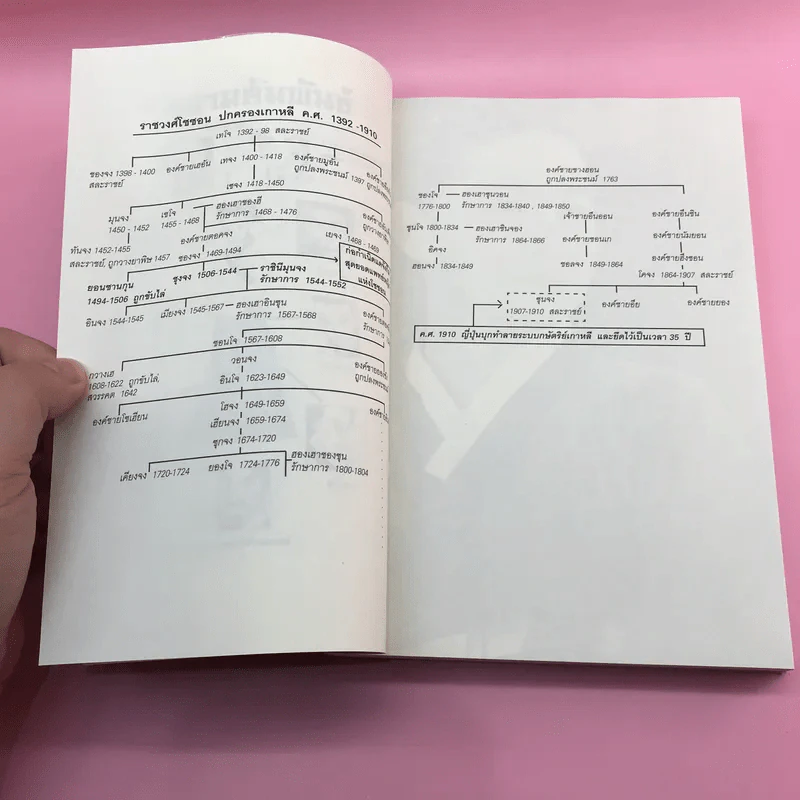 ราชวงศ์โชซอน ปกครองเกาหลี ค.ศ. 1392 -1910
เทโจ 1392 - 98 สละราชย์
ชองจง 1398 - 1400
สละราชย์
องค์ชายเฮอัน
เทจง 1400 - 1418
องค์ชายมูอัน
ถูกปลงพระชนม์ 1397
เซจง 1418 -1450
มุนจง
1450 - 1452
เซโจ
1455 - 1468
ฮองเฮาชองฮี
รักษาการ 1468 - 1476
ทันจง 1452-1455
สละราชย์, ถูกวางยาพิษ 1457
องค์ชายดอคจง
ซองจง 1469-1494
เยจง 1468 - 1469
ยอนซานกุน
1494-1506 ถูกขับไล่
ชุงจง 1506-1544
ราชินีมุนจง
รักษาการ 1544-1552
ก่อกำเนิด
สุดยอด
แห่งโชซอน
อินจง 1544-1545
เมียงจง 1545-1567
ฮองเฮาอินซุน
รักษาการ 1567-1568
ซอนโจ 1567-1608
กวางเฮ
1608-1622 ถูกขับไล่,
สวรรคต 1642
วอนจง
อินโจ 1623-1649
ถูกปลงพระชนม์
องค์ชายโซเฮียน
โฮจง 1649-1659
เฮียนจง 1659-1674
ซุกจง 1674-1720
เคียงจง 1720-1724
ยองโจ 1724-1776
ฮองเฮาชองชุน
รักษาการ 1800-1804
องค์ชายชางฮอน
ถูกปลงพระชนม์ 1763
ชองโจ
1776-1800
ฮองเฮาซุนวอน
รักษาการ 1834-1840 , 1849-1850
ซุนโจ 1800-1834
ฮองเฮาซินจอง
รักษาการ 1864-1866
อิคจง
ฮอนจง 1834-1849
เจ้าชายอึนออน
องค์ชายชอนเก
ชอลจง 1849-1864
องค์ชายอึนชิน
องค์ชายนัมยอน
องค์ชายฮึงซอน
โคจง 1864-1907 สละราชย์
ซุนจง
1907-1910 สละราชย์
องค์ชายอึย
องค์ชายยอง
ค.ศ. 1910 ญี่ปุ่นบุกทำลายระบบกษัตริย์เกาหลี และยึดไว้เป็นเวลา 35 ปี